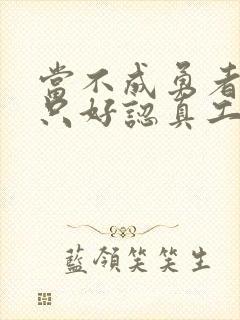 當不成勇者
只好認真工
藍領笑笑生